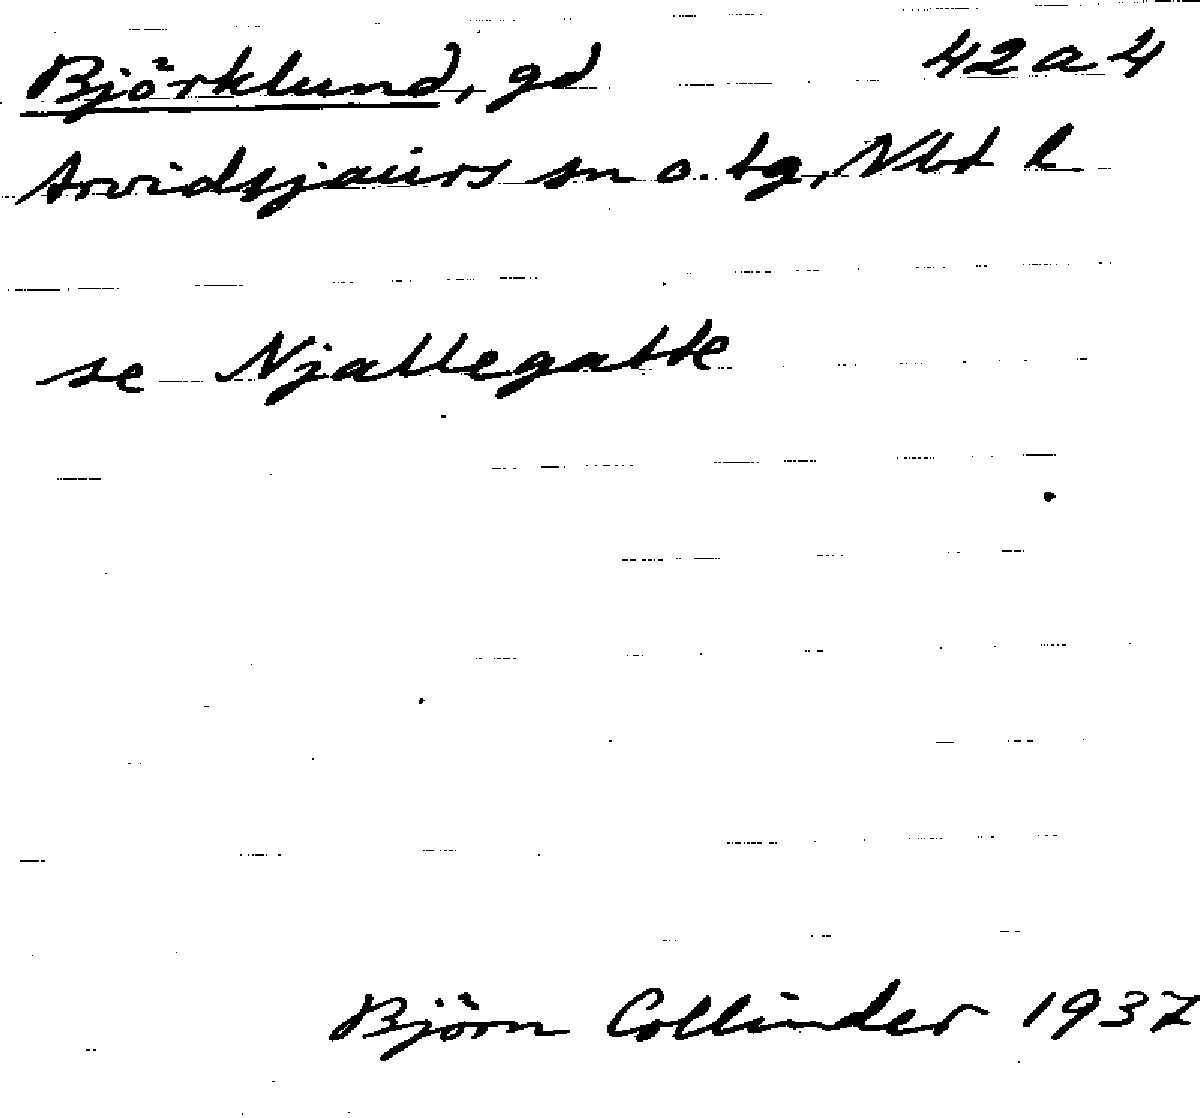 Björklund, gd 42a4
Arvidsjaurs sn o. tg, Nbt l
se Njallegatte
Björn Collinder 1937